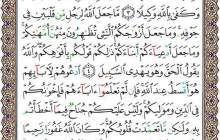 وَكَفَىٰ بِٱللَّهِ وَكِيلًا ٣ مَّا جَعَلَ ٱللَّهُ لِرَجُلٍ مِّن قَلْبَيْنِ فِى
جَوْفِهِۦ وَمَا جَعَلَ أَزْوَٰجَكُمُ ٱلَّـٰٓـِٔى تُظَـٰهِرُونَ مِنْهُنَّ أُمَّهَـٰتِكُمْ
وَمَا جَعَلَ أَدْعِيَآءَكُمْ أَبْنَآءَكُمْ ذَٰلِكُمْ قَوْلُكُم بِأَفْوَٰهِكُمْ وَٱللَّهُ
يَقُولُ ٱلْحَقَّ وَهُوَ يَهْدِى ٱلسَّبِيلَ ٤ ٱدْعُوهُمْ لِـَٔابَآئِهِمْ
هُوَ أَقْسَطُ عِندَ ٱللَّهِ فَإِن لَّمْ تَعْلَمُوٓا۟ ءَابَآءَهُمْ فَإِخْوَٰنُكُمْ
فِى ٱلدِّينِ وَمَوَٰلِيكُمْ وَلَيْسَ عَلَيْكُمْ جُنَاحٌ فِيمَآ أَخْطَأْتُم
بِهِۦ وَلَـٰكِن مَّا تَعَمَّدَتْ قُلُوبُكُمْ وَكَانَ ٱللَّهُ غَفُورًا رَّحِيمًا